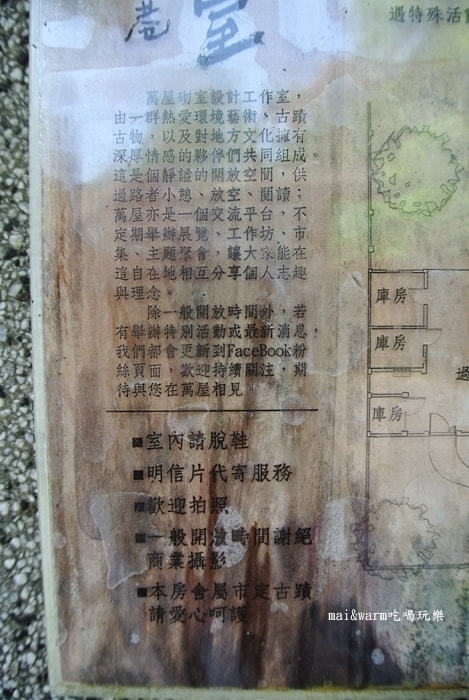 巷
室
遇特殊活
萬屋砌室環設計工作室，
由一群熱愛對境藝術、古蹟
古物，以及地方文化擁有
深厚情感的夥伴們共同組成。
這是個靜謐的開放空間，供
過路者小憩、放空、閱讀；
萬屋亦是一個交流平台，不
定期舉辦展覽、工作坊、市
集、主題聚會，讓大家能在
這自在地相互分享個人志趣
與理念。
除一般開放時間外，若
有舉辦特別活動或最新消息，
我們都會更新到FaceBook粉
絲頁面，歡迎持續關注，期
待與您在萬屋相見。
■室內請脫鞋
■明信片代寄服務
■歡迎拍照
■一般開放時間謝絕
商業攝影
■本房會屬市定古蹟
請愛心呵護
庫房
庫房
庫房
mai&warm吃喝玩樂